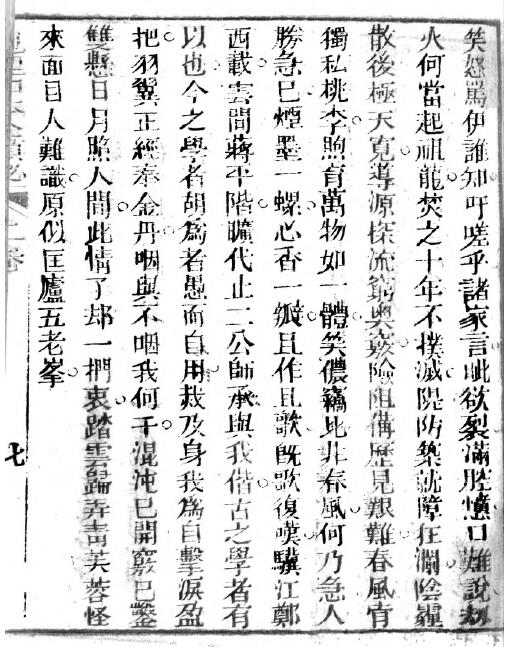 笑怒罵伊誰知吁嗟乎諸家言眦欲裂滿腔憤口難說刼
火何當起祖龍焚之十年不撲滅隄防築就障狂瀾陰霾
散後極天寬導源探流窮奧窔險阻備歷見艱難春風肯
獨私桃李煦育萬物如一體笑儂竊比非春風何乃急人
勝急已煙墨一螺心香一瓣且作且歌旣歌復嘆驥江鄭
西載雲間蔣平階曠代止二公師承與我偕古之學者有
以也今之學者胡為者愚而自用烖及身我為自擊淚盈
把羽翼正經奉金丹咽與不咽我何干混沌已開竅已鑿
雙懸日月照人間此情了却一櫚衷踏雲躡弄靑芙蓉怪
來面目人難識原似匡廬五老峯
七